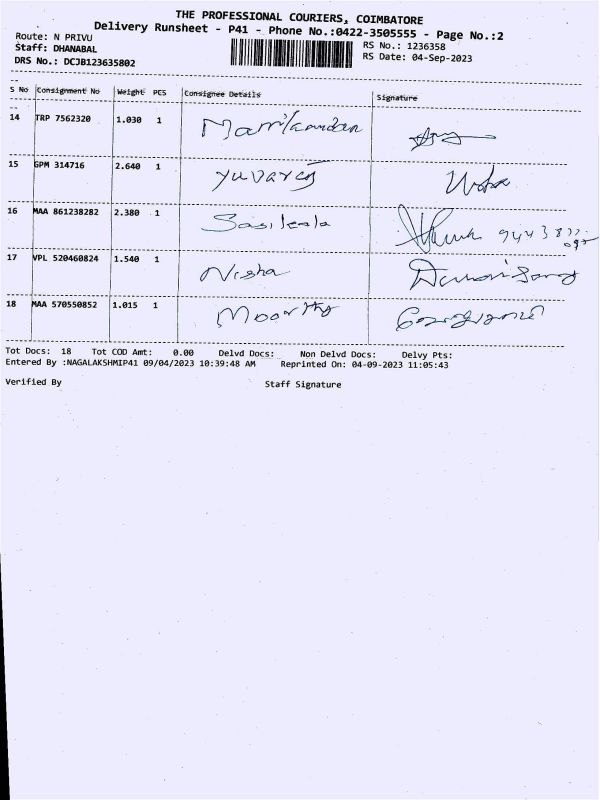 THE PROFESSIONAL COURIERS, COIMBATORE
Delivery Runsheet - P41 - Phone No.:0422-3505555 - Page No.:2
Route: N PRIVU
RS No.: 1236358
Staff: DHANABAL
RS Date: 04-Sep-2023
DRS No.: DCJB123635802
S No Consignment No Weight PCS Consignee Details Signature
14 TRP 7562320 1.030 1
15 GPM 314716 2.640 1 Yuvaraj
16 MAA 861238282 2.380 1 Sasikala
17 VPL 520460824 1.540 1 Nisha
18 MAA 570550852 1.015 1 Moorthy
Tot Docs: 18 Tot COD Amt: 0.00 Delvd Docs: Non Delvd Docs: Delvy Pts:
Entered By :NAGALAKSHMIP41 09/04/2023 10:39:48 AM Reprinted On: 04-09-2023 11:05:43
Verified By Staff Signature